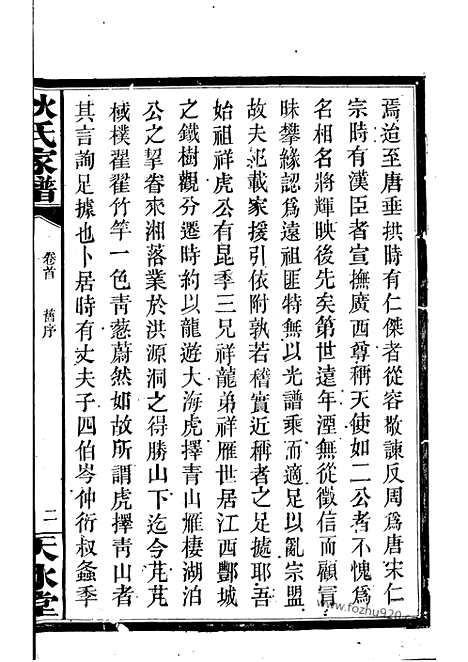 焉迨至唐垂拱時有仁傑者從容敢諫反周爲唐宋仁
宗時有漢臣者宣撫廣西尊稱天使如二公者不愧爲
名相名將輝映後先矣第世遠年湮無從徵信而顧冒
昧攀緣認爲遠祖匪特無以光譜乘而適足以亂宗盟
故夫汜載家援引依附孰若稽實近稱者之足據耶吾
始祖祥虎公有昆季三兄祥龍弟祥雁世居江西酆城
之鐵樹觀分遷時約以龍遊大海虎擇青山雁棲湖泊
公之挈眷來湘落業於洪源洞之得勝山下迄今芃芃
棫樸翟翟竹竿一色靑蔥蔚然如故所謂虎擇靑山者
其言詢足據也卜居時有丈夫子四伯岑仲衍叔螽季
狄氏家譜
卷首
舊序
二
天水堂
www.fozhu920.com